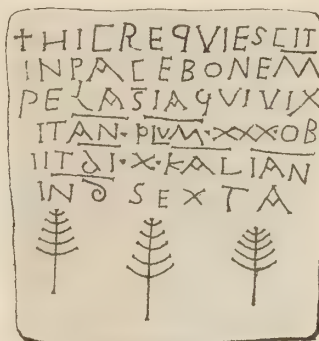 +HICREQVIESCIT
INPACEBONEM
PELASIAQVIVIX
ITAN·PLVM·XXX·OB
IIT∂I·X·KALIAN
IN∂ SEXTA